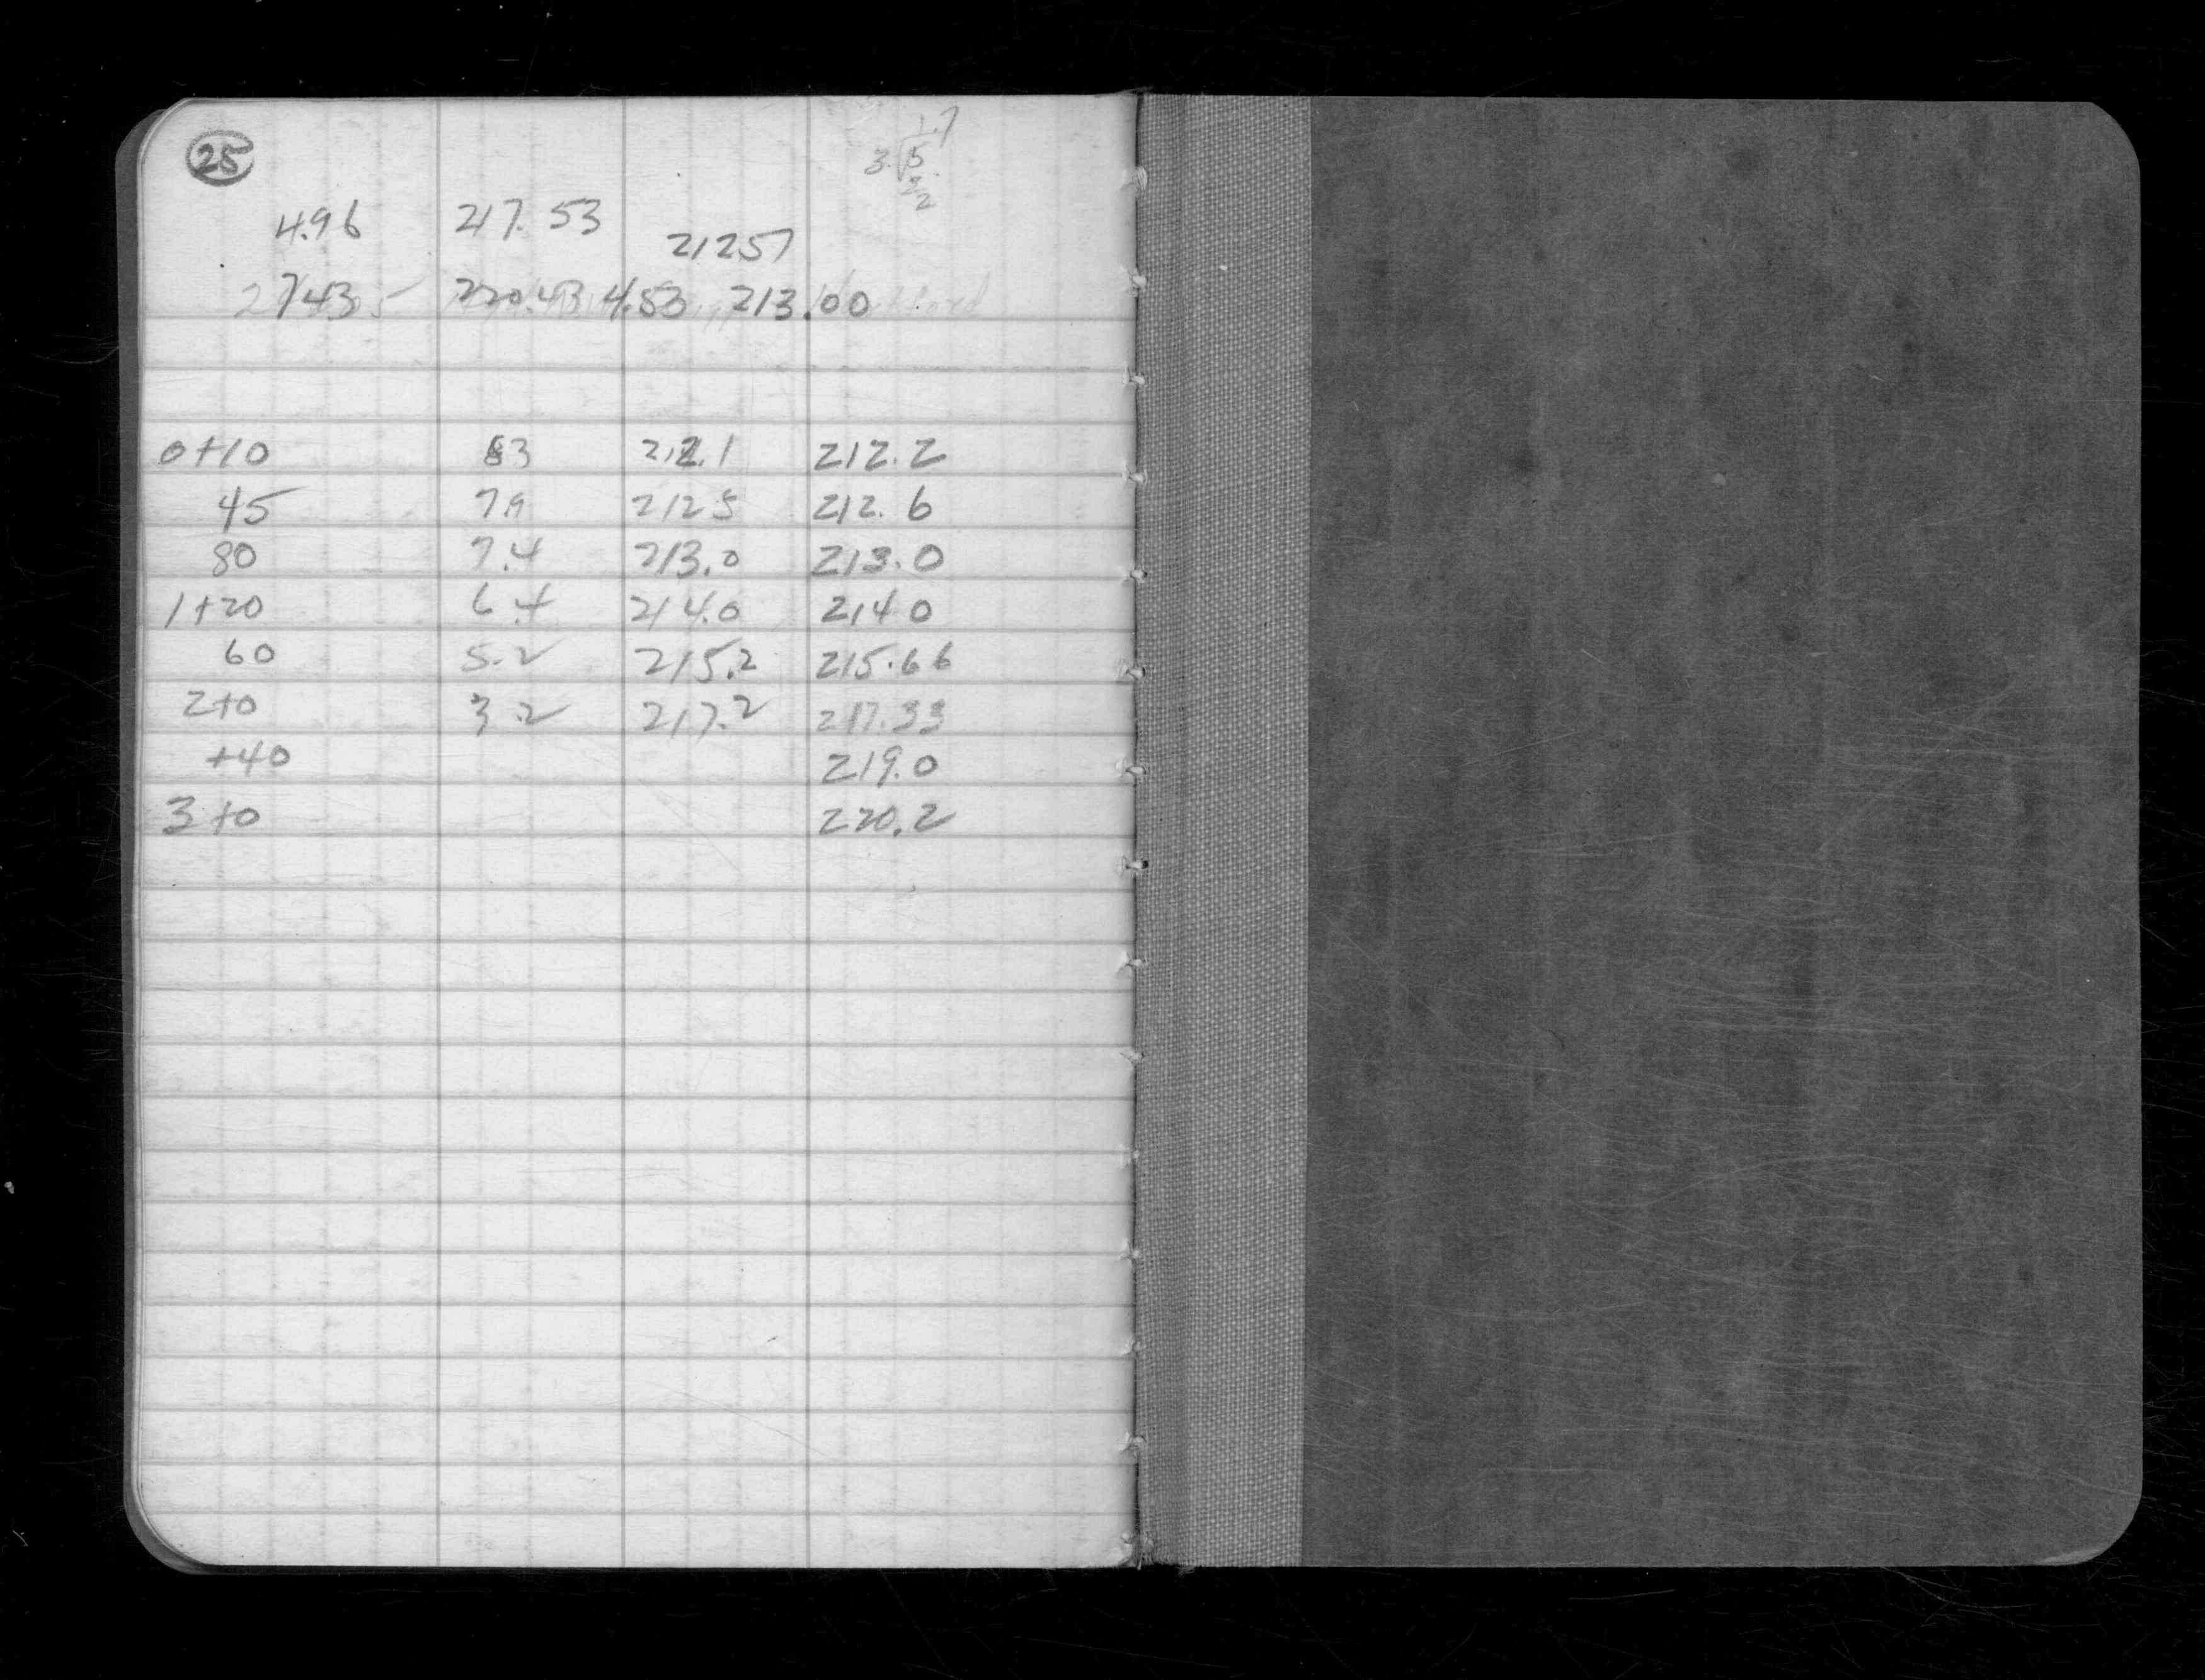 25
1.7
3. 5
3
2
4.96 217.53 21257
743 220.43 4.53 213.00
0+10 83 212.1 212.2
45 79 2125 212.6
80 7.4 213.0 213.0
1+20 6.4 214.0 214 0
60 5.2 215.2 215.66
2+0 3.2 217.2 217.33
+40 219.0
3+0 220.2